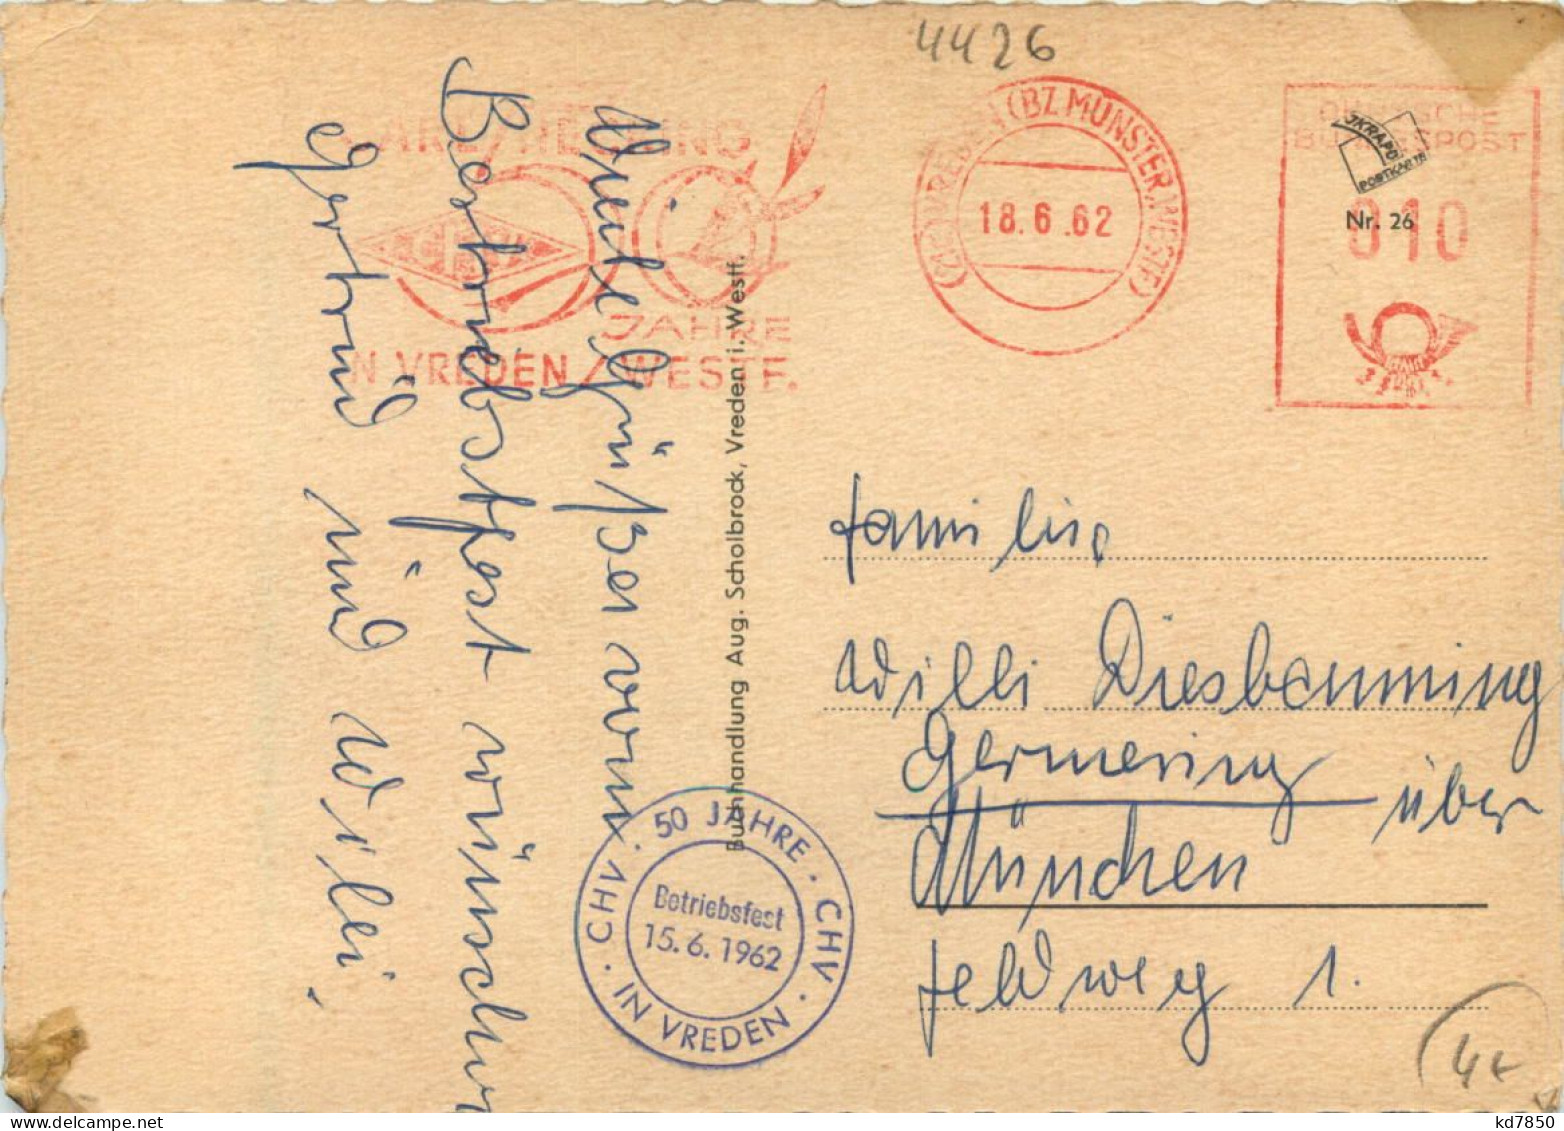 4426
HUNING
JAHRE
IN VREDEN / WESTF.
VREDEN (BZ MÜNSTER, WESTF)
18.6.62
DEUTSCHE
BUNDESPOST
010
KRAPO
POSTKARTE
Nr. 26
Viele Grüße vom
Betriebsfest wünschen
Gertrud und Willi.
Buchhandlung Aug. Scholbrock, Vreden i. Westf.
CHV · 50 JAHRE · CHV
Betriebsfest
15.6.1962
· IN VREDEN ·
Familie
Willi Diesbenning
Germering über
München
Feldweg 1.
4x
kd7850